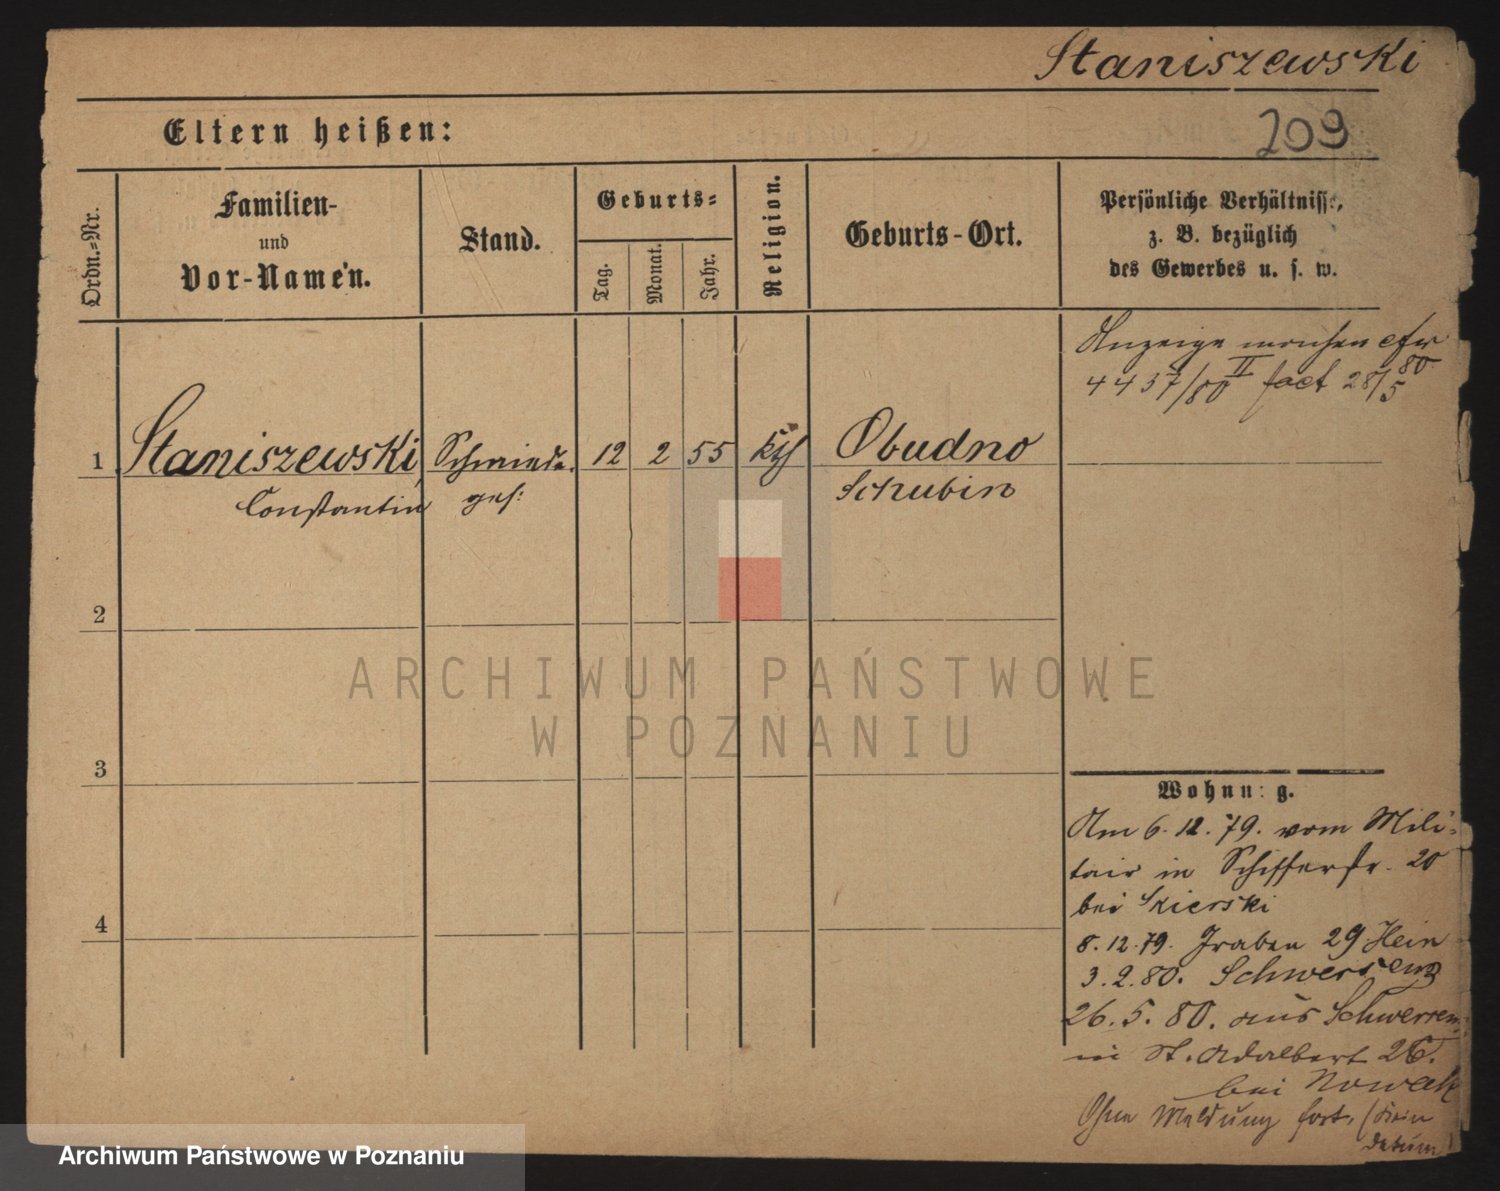 Staniszewski
209
Eltern heißen:
Ordn.=Nr.
Familien-
und
Vor-Namen.
Stand.
Geburts=
Tag.
Monat.
Jahr.
Religion.
Geburts-Ort.
Persönliche Verhältnisse,
z. B. bezüglich
des Gewerbes u. s. w.
Anzeige
4437/80 II fact 28/5 80
1 Staniszewski, Schmiede 12 2 55 kth Obudno
Constantin ges: Schubin
2
3
4
Wohnung.
Am 6.12.79. vom Mili-
tair in Schifferstr. 20
bei Skierski
8.12.79. Graben 29 Hein
3.2.80. Schwersenz
26.5.80. aus Schwersenz
in St. Adalbert 26.
bei Nowak
Ohne Meldung fort,
datum
ARCHIWUM PAŃSTWOWE
W POZNANIU
Archiwum Państwowe w Poznaniu